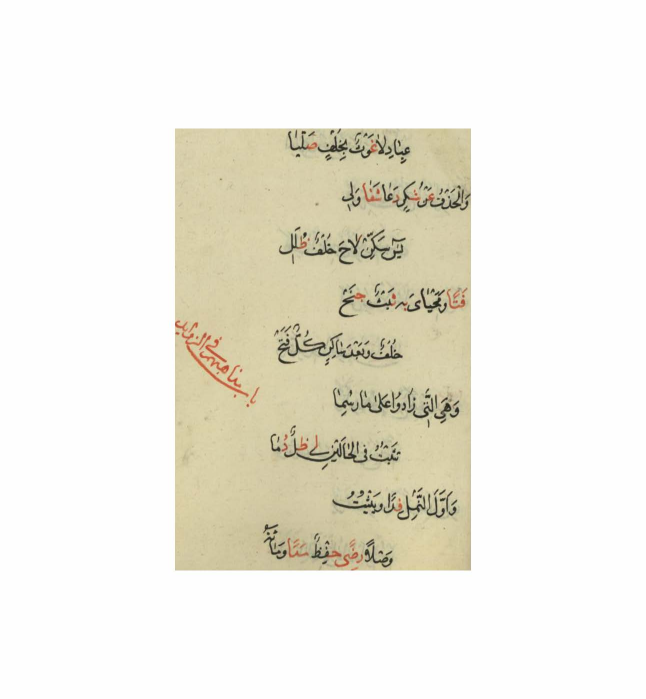 عِبَادِ لَا غَوْثُ بِخُلْفٍ صَلْيَا
وَالْحَذْفُ عَنْ شُكْرٍ دَعَا شَفَا وَلِي
يٰسٓ سَكِّنْ لَاحَ خُلْفُ ظُلَلِ
فَتًا وَمَحْيَايَ بِهِ ثَبْتٌ جَنَحْ
خُلْفٌ وَبَعْدَ سَاكِنٍ كُلٌّ فَتَحْ
باب مذاهبهم في الزوايد
وَهْيَ الَّتِي زَادُوا عَلَى مَا رُسِمَا
تَثْبُتُ فِي الْحَالَيْنِ لِي ظِلٌّ دُمَا
وَأَوَّلَ النَّمْلِ فِدًا وَيَثْبُتُ
وَصْلًا رِضًى حِفْظٌ مَدًا وَمِائَةٌ